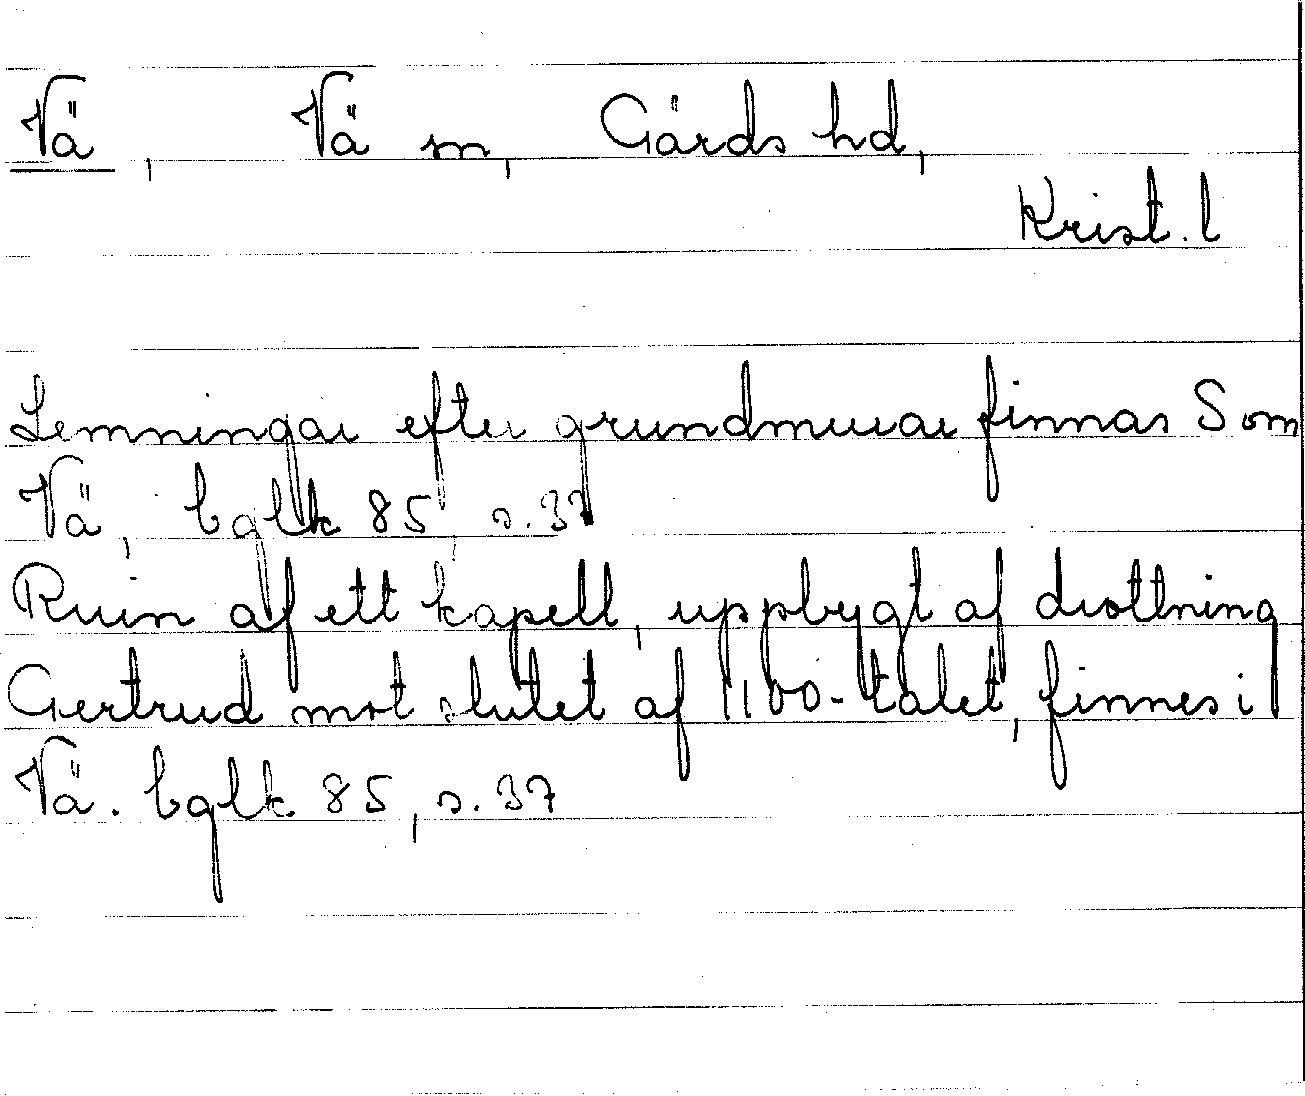 Vä, Vä sn, Gärds hd,
Krist. l
Lemningar efter grundmurar finnas S om
Vä, bglk 85, s. 37
Ruin af ett kapell, uppbygt af drottning
Gertrud mot slutet af 1100-talet, finnes i
Vä. bglk 85, s. 37